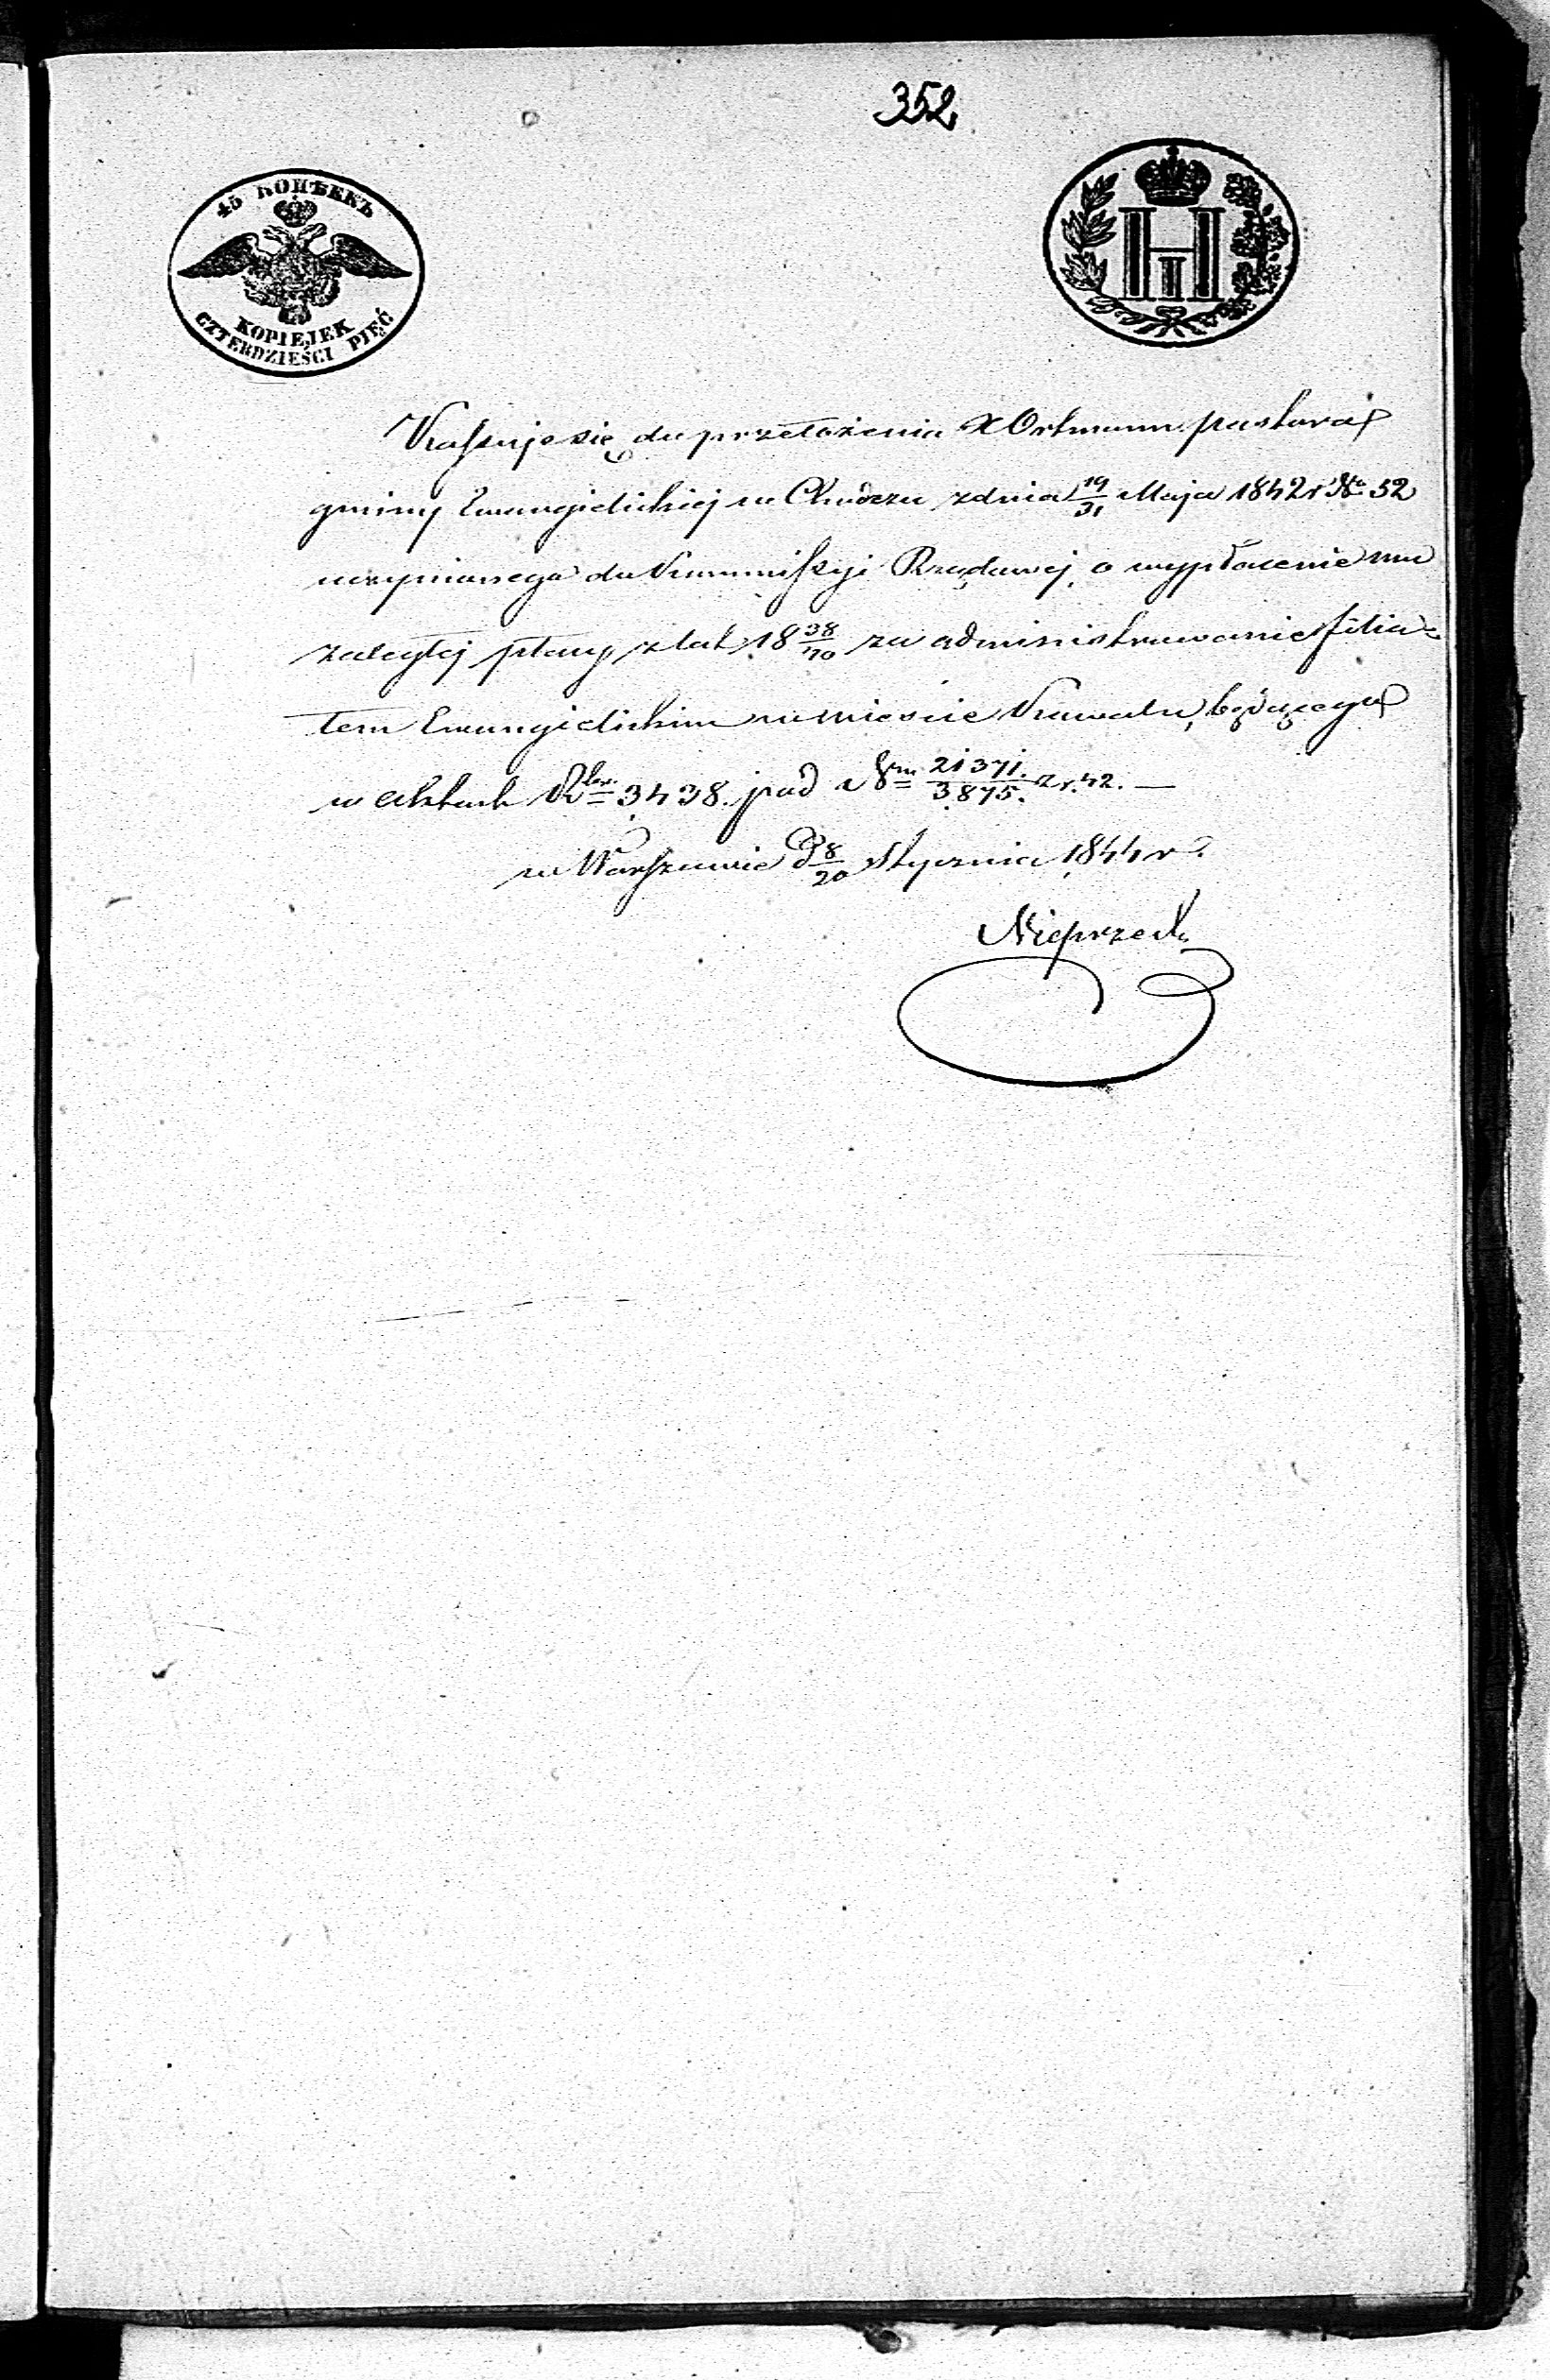 352
45 КОПѢЕКЪ
KOPIEJEK
CZTERDZIEŚCI PIĘĆ
H
I
Kassuje się do przełożenia X Ortmann pastora
gminy Ewangielickiej w Chodczu z dnia 19/31 Maja 1842 r No 52
uczynionego do Kommissyi Rządowej, o wypłacenie mu
zaległej płacy z lat 18 38/40 za administrowanie filia=
łem Ewangielickim w mieście Kowalu, będącego
w aktach 3438. pod Nrm 21371./3875. z r. 42. —
w Warszawie d 8/20 Stycznia 1844 r.
Nieprzecki